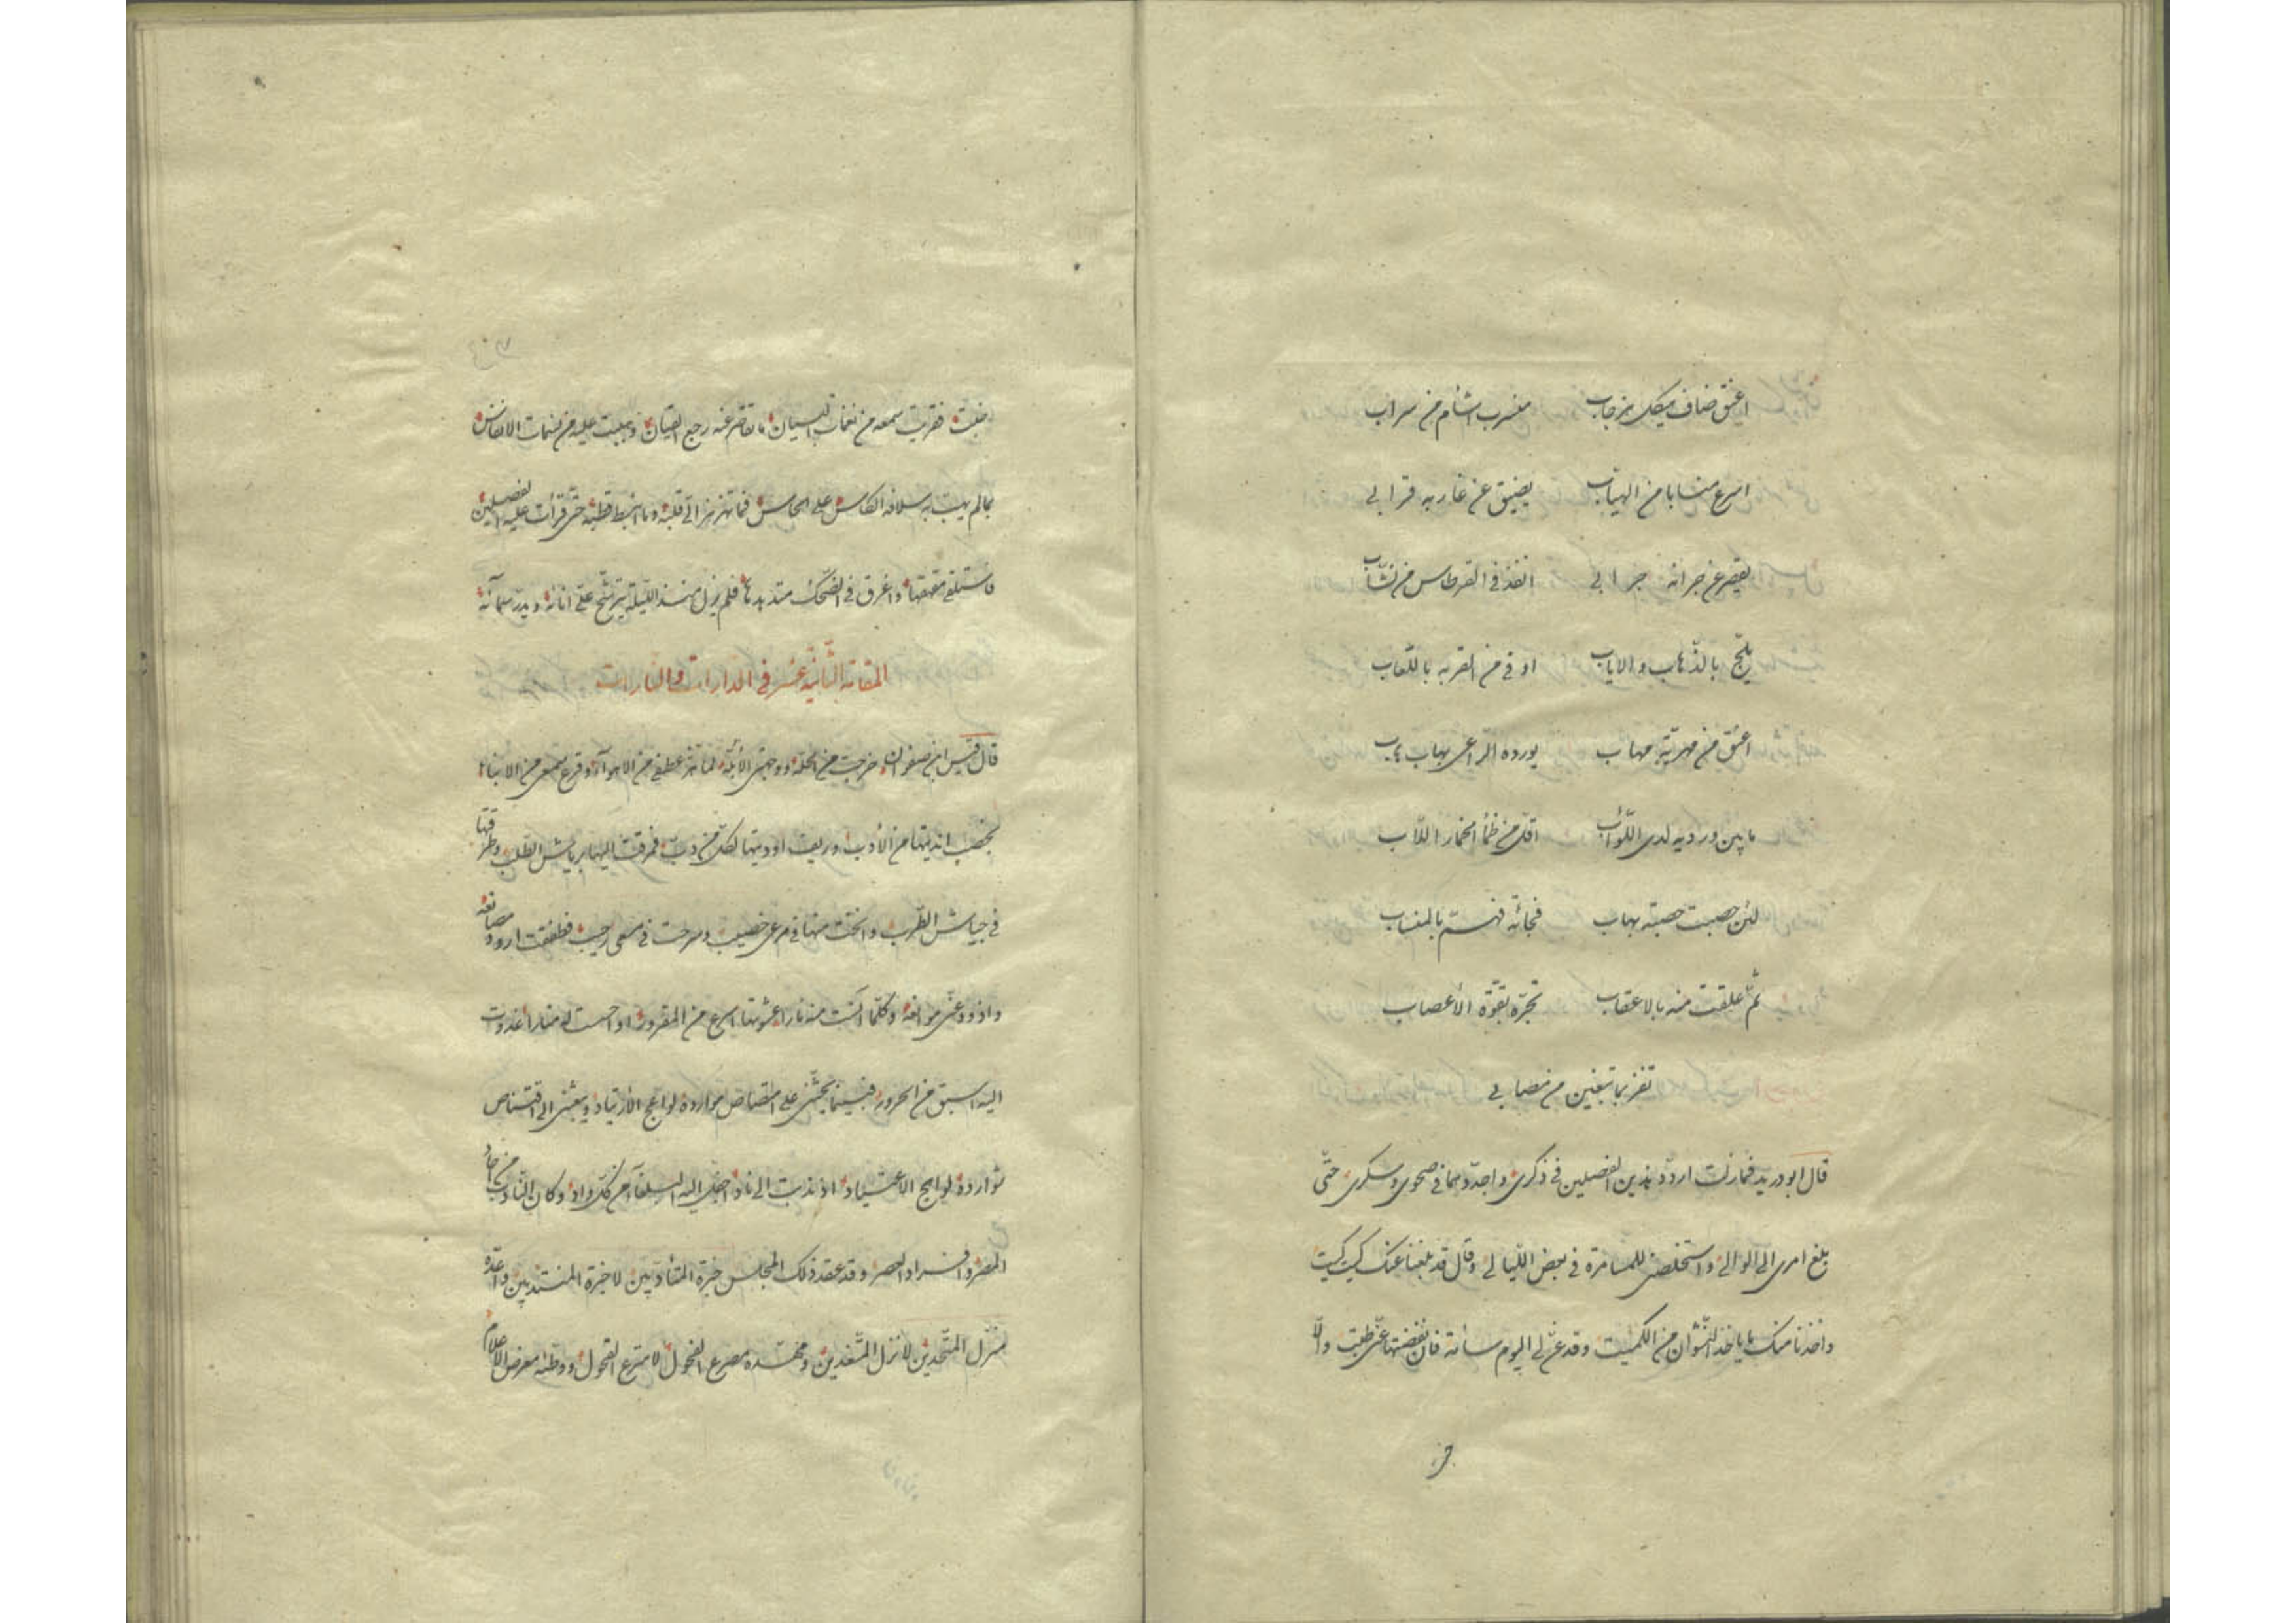 اعنق ضاف هيكل مزجاب منسرب اشام من سراب
اسرع منسابا من الهباب يضيق عن غاربه قرابى
يقصر عن جرانه جرابى انفذ فى القرطاس من نشاب
يلج بالذهاب والاياب اوقى من القربه باللعاب
اعنق من مهرية مهاب يورده الراعى بهاب
ما بين ورديه لدى اللواب اقل من ظمأ الحمار اللاب
لئن حصبت حصبة بهاب
ثم علقت منه بالاعقاب تجره بقوة الأعصاب
تفز بما تبغين من نصابى
قال ابو دريد فما زلت اردد هذين الفصلين فى ذكرى واجددهما فى صحوى وسكرى حتى
بلغ امرى الى الوالى واستخلصنى للمسامرة فى بعض الليالى وقال قد بلغنا عنك كيت كيت
واخذنا منك ما ياخذ النشوان من الكميت وقد عن لى اليوم سأمة فان نفضتها عنى طبت والا
خبت فقريت سمعه من نغمات البيان ما تقصر عنه رجع القيان وهببت عليه من نسمات الانفاس
بما لم يهب به سلافه الكاس على الحاس فما تهزهز الى قلبه وما انبسط قطبه حتى قرأت عليه الفصلين
فاستلقى مقهقها واغرق فى الضحك متدهدها فلم يزل منذ الليلة يترشح على انائه ويدر سمائه
المقامة الثانية عشر فى الدارات والنارات
قال قيس ابن صفوان خرجت من الحلة ووجهتى الأبلة لما هز عطفى من الاهواء وقرع سمعى من الانباء
بخصب انديتها من الأدب وريف اوديتها لكل من دب فمرقت اليها برياش الطلب وطرقتها
فى جياش الطرب وانخت منها فى مرعى خصيب وسرحت فى مسعى رحيب فطفقت ارود مصانعه
واذود عنى موانعه وكلما آنست منه نارا عشوتها اسرع من المقرور او احسست له منارا غدوت
اليه اسبق من الحرور فبينما يحثنى على اقتصاص موارده لواعج الارتياد ويبعثنى الى اقتناص
شوارده لوايح الاعتياد اذ نديت الى ناد اجفل اليه البلغاء من كل واد وكان النادى من احاد
المصر وافراد العصر وقد عقد ذلك المجلس خبرة المتأدبين لا خبزة المنتدبين واعده
منزل المتحدين لا نزل المتغدين ومهده مصرع الفحول لا مترع القحول ووطنه معرض الاعلام